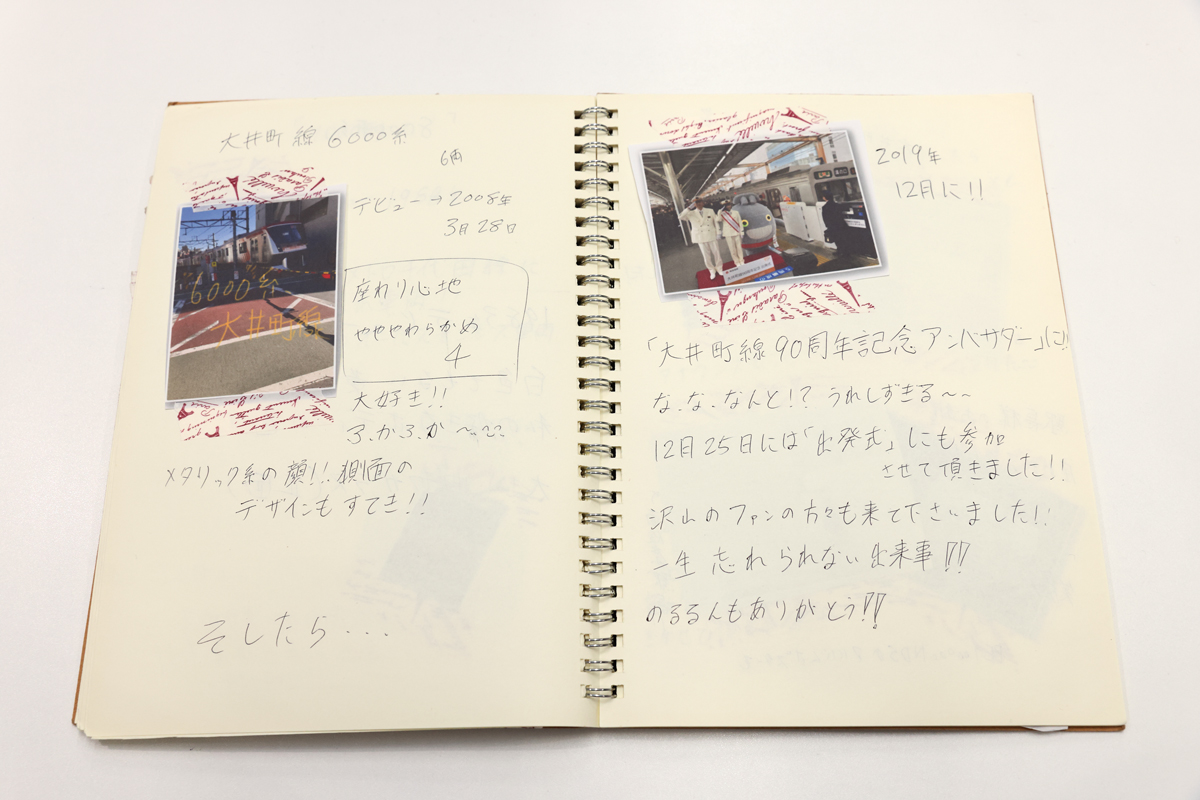 大井町線6000系
6両
デビュー→2008年
3月28日
"6000"系
大井町線
座わり心地
ややややわらかめ
4
大好き!!
3.か3.か〜〜〜
メタリック系の顔!!側面の
デザインもすてき!!
そしたら・・・
2019年
12月に!!
「大井町線90周年記念アンバサダー」に!!
な、な、なんと!?うれしすぎる〜〜
12月25日には「出発式」にも参加
させて頂きました!!
沢山のファンの方々も来て下さいました!!
一生忘れられない出来事!!
のるるんもありがとう!!